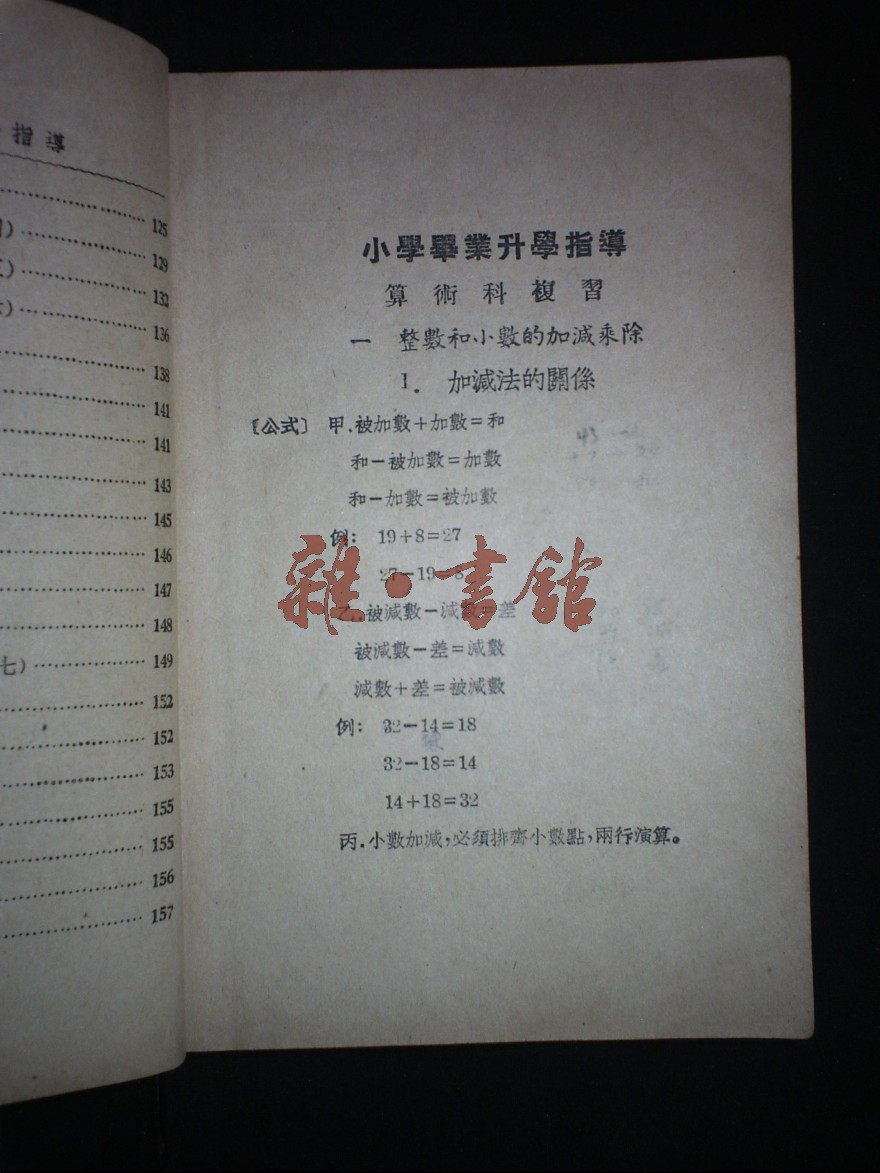 指導
125
129
132
136
138
141
141
143
145
146
147
148
七) 149
152
152
153
155
155
156
157
小學畢業升學指導
算術科複習
一 整數和小數的加減乘除
1. 加減法的關係
〔公式〕 甲.被加數+加數=和
和-被加數=加數
和-加數=被加數
例: 19+8=27
27-19=8
乙.被減數-減數=差
被減數-差=減數
減數+差=被減數
例: 32-14=18
32-18=14
14+18=32
丙.小數加減,必須排齊小數點,兩行演算。
雜·書館